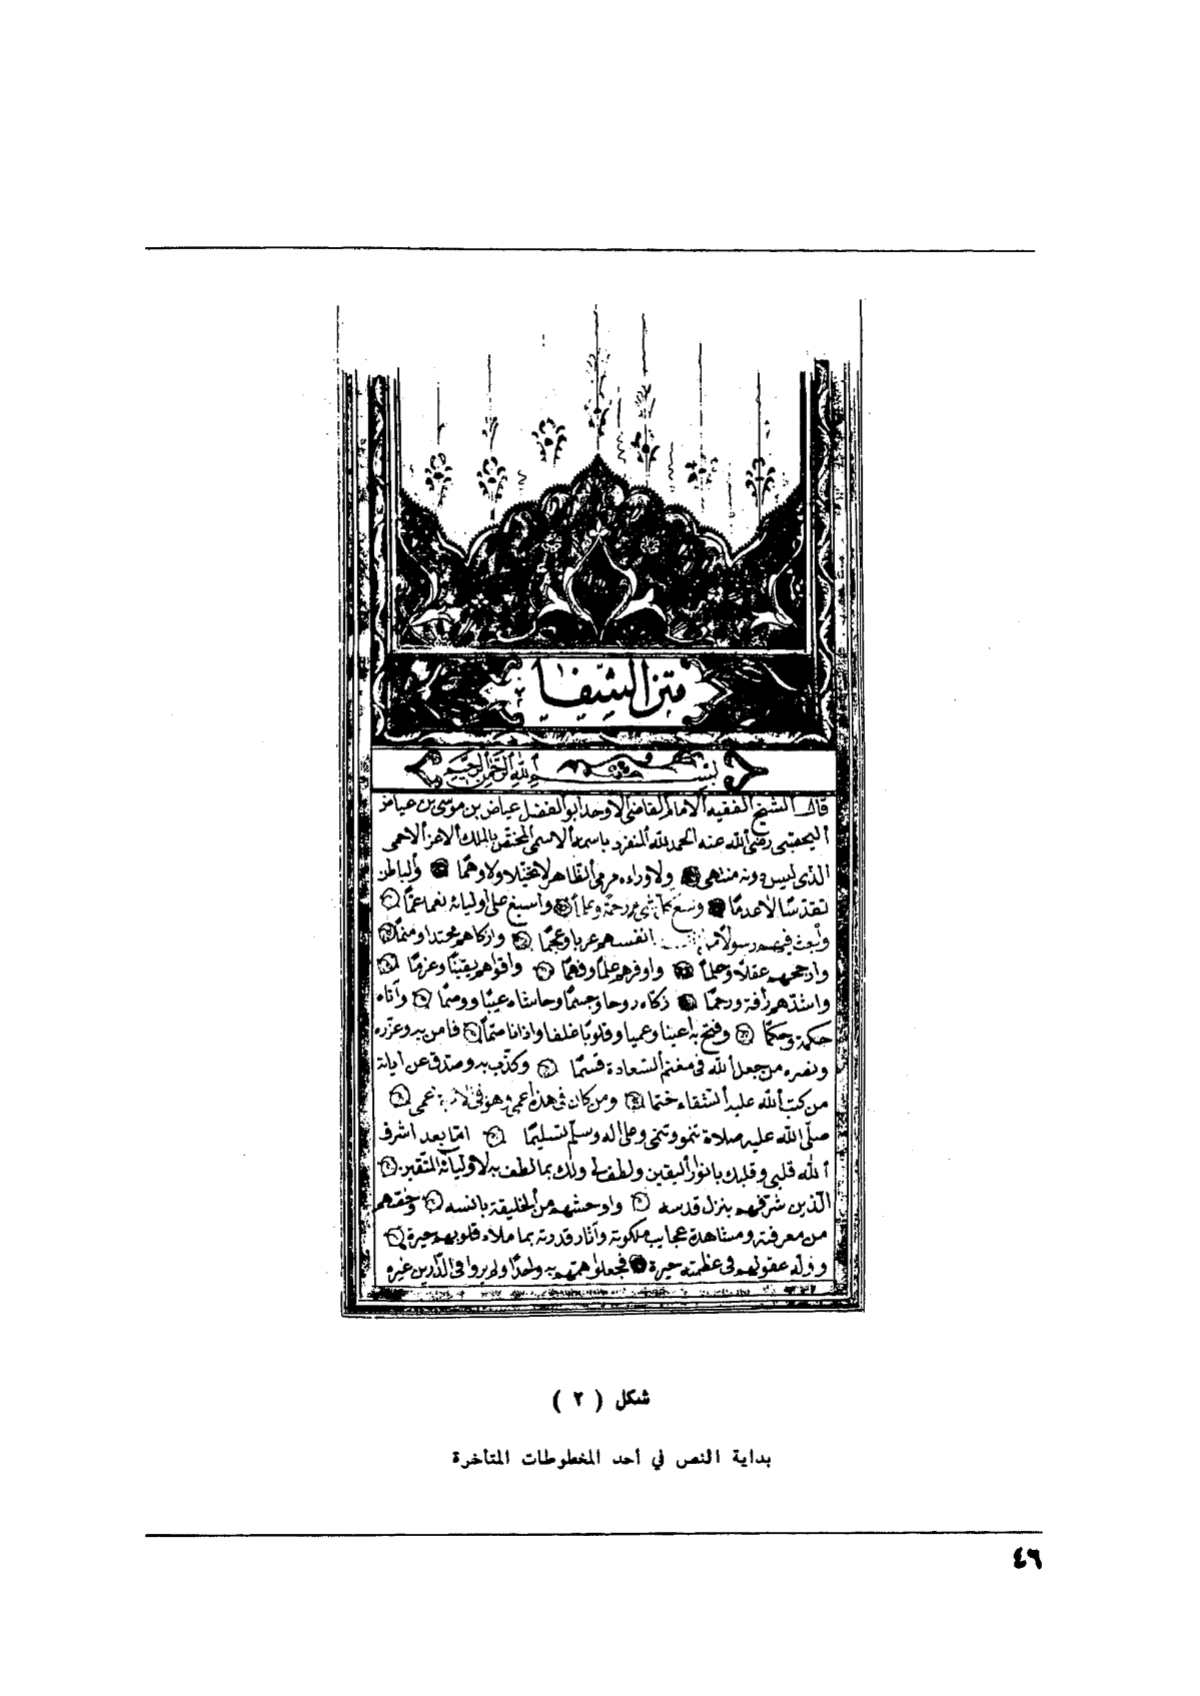 متن الشفا
بسم الله الرحمن الرحيم
قال الشيخ الفقيه الامام القاضي الاوحد ابو الفضل عياض بن موسى بن عياض
اليحصبي رضي الله عنه الحمد لله المنفرد باسمه الاسمى المختص بالملك الاعز الاحمى
الذي ليس دونه منتهى ولا وراءه مرمى الظاهر لا تخيلا ولا وهما والباطن
تقدسا لا عدما وسع كل شيء رحمة وعلما واسبغ على اوليائه نعما عما
وبعث فيهم رسولا من انفسهم عربا وعجما وازكاهم محتدا ومنما
وارجحهم عقلا وحلما واوفرهم علما وفهما واقواهم يقينا وعزما
واشدهم رأفة ورحما زكاه روحا وجسما وحاشاه عيبا ووصما وآتاه
حكمة وحكما وفتح به اعينا عميا وقلوبا غلفا واذانا صما فامن به وعزره
ونصره من جعل الله في مغنم السعادة قسما وكذب به وصدف عن اياته
من كتب الله عليه الشقاء حتما ومن كان في هذه اعمى فهو في الاخرة اعمى
صلى الله عليه صلاة تنمو وتنمى وعلى اله وسلم تسليما اما بعد اشرق
الله قلبي وقلبك بانوار اليقين ولطف لي ولك بما لطف به لاوليائه المتقين
الذين شرفهم بنزل قدسه واوحشهم من الخليقة بانسه وخصهم
من معرفته ومشاهدة عجايب ملكوته وآثار قدرته بما ملاء قلوبهم حبرة
ووله عقولهم في عظمته حيرة فجعلوا همهم به واحدا ولم يروا في الدارين غيره
شكل ( ٢ )
بداية النص في أحد المخطوطات المتأخرة
٤٦